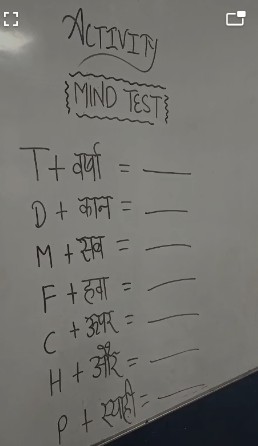 ACTIVITY
MIND TEST
T + वर्षा = ___
D + कान = ___
M + सब = ___
F + हवा = ___
C + ऊपर = ___
H + और = ___
P + स्याही = ___